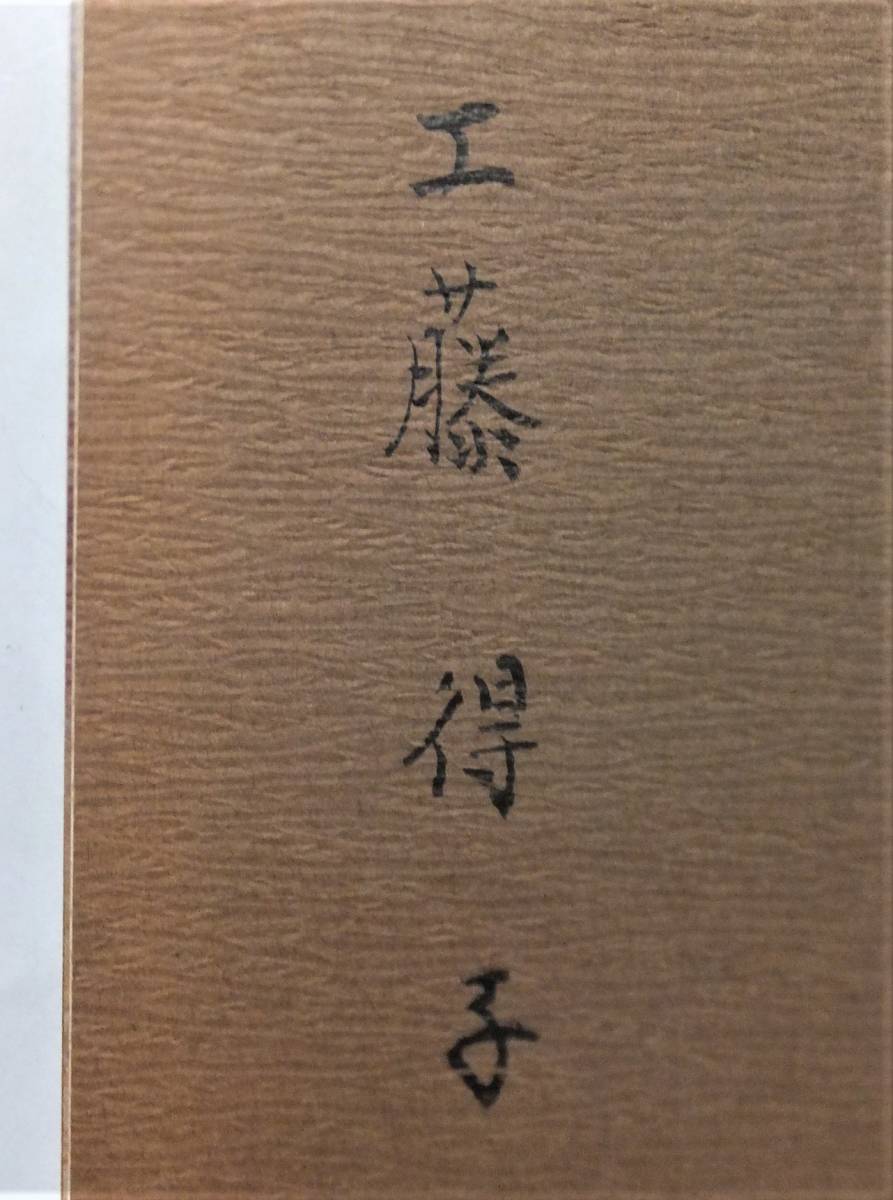 工藤得子